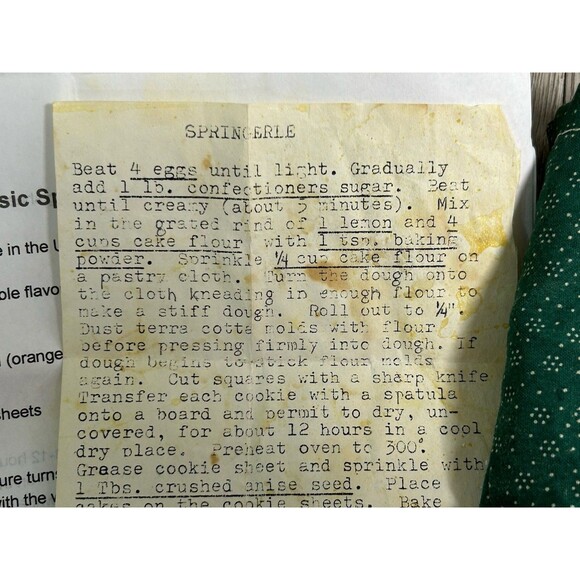 SPRINGERLE
Beat 4 eggs until light. Gradually
add 1 lb. confectioners sugar. Beat
until creamy (about 5 minutes). Mix
in the grated rind of 1 lemon and 4
cups cake flour with 1 tsp. baking
powder. Sprinkle ¼ cup cake flour on
a pastry cloth. Turn the dough onto
the cloth kneading in enough flour to
make a stiff dough. Roll out to ¼".
Dust terra cotta molds with flour
before pressing firmly into dough. If
dough begins to stick flour molds
again. Cut squares with a sharp knife
Transfer each cookie with a spatula
onto a board and permit to dry, un-
covered, for about 12 hours in a cool
dry place. Preheat oven to 300°.
Grease cookie sheet and sprinkle with
1 Tbs. crushed anise seed. Place
cakes on the cookie sheets. Bake
sic Sp
e in the U
ole flavo
(orange
sheets
ure turns
with the w